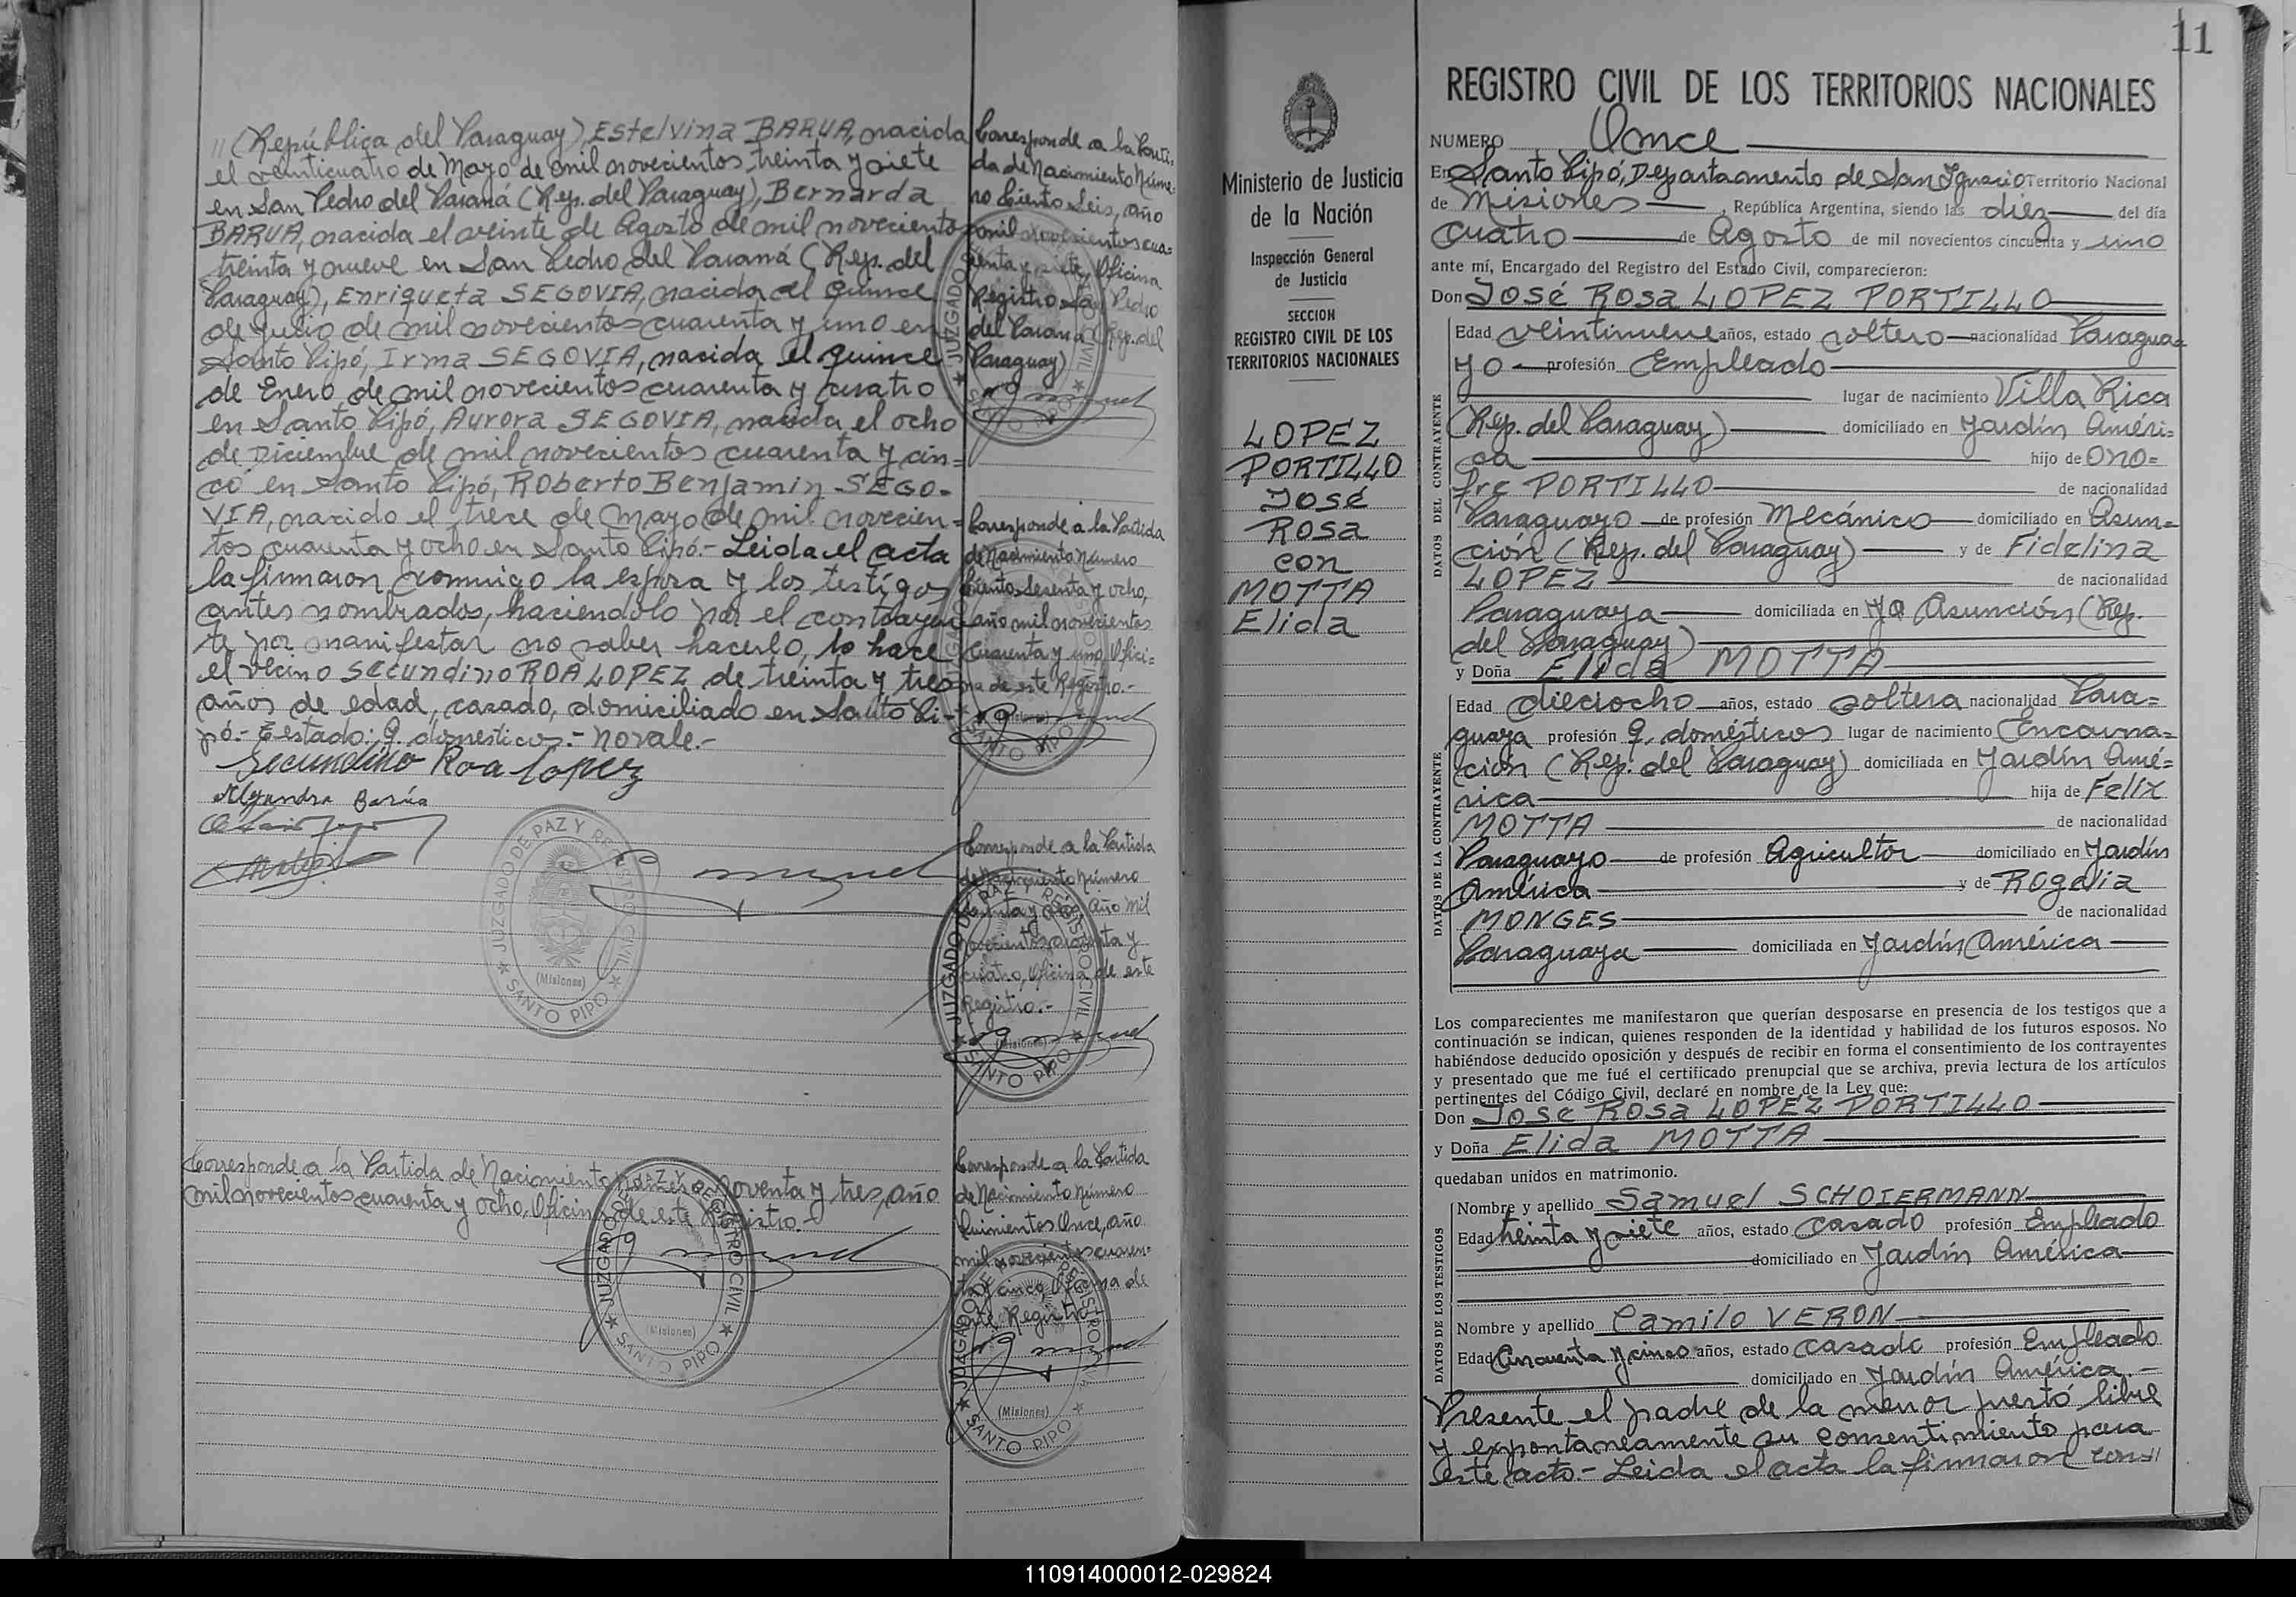 (República del Paraguay), Estelvina BARUA, nacida
el veinticuatro de Mayo de mil novecientos treinta y siete
en San Pedro del Paraná (Rep. del Paraguay), Bernarda
BARUA, nacida el veinte de Agosto de mil novecientos
treinta y nueve en San Pedro del Paraná (Rep. del
Paraguay), Enriqueta SEGOVIA, nacida el quince
de Julio de mil novecientos cuarenta y uno en
Santo Pipó, Irma SEGOVIA, nacida el quince
de Enero de mil novecientos cuarenta y cuatro
en Santo Pipó, Aurora SEGOVIA, nacida el ocho
de Diciembre de mil novecientos cuarenta y cin=
co en Santo Pipó, Roberto Benjamin SEGO-
VIA, nacido el trece de Mayo de mil novecien=
tos cuarenta y ocho en Santo Pipó.- Leida el acta
la firmaron conmigo la esposa y los testigos
antes nombrados, haciendolo por el contrayen
te por manifestar no saber hacerlo, lo hace
el vecino Secundino ROA LOPEZ de treinta y tres
años de edad, casado, domiciliado en Santo Pi-
pó.- Estado: q. domesticos.- no vale.-
Secundino Roa Lopez
Alejandra Barúa
JUZGADO DE PAZ Y REGISTRO CIVIL
(Misiones)
SANTO PIPO
Corresponde a la Partida de Nacimiento número noventa y tres, año
mil novecientos cuarenta y ocho, Oficina de este Registro.-
JUZGADO DE PAZ Y REGISTRO CIVIL
(Misiones)
SANTO PIPO
Corresponde a la Parti-
da de Nacimiento Núme-
ro Ciento Seis, año
mil novecientos cua-
renta y siete, Oficina
Registro San Pedro
del Paraná (Rep. del
Paraguay)
JUZGADO CIVIL
SANTO PIPO
Corresponde a la Partida
de Nacimiento Número
Ciento Sesenta y ocho,
año mil novecientos
Cuarenta y uno, Ofici=
na de este Registro.-
(Misiones)
SANTO PIPO
Corresponde a la Partida
de Nacimiento Número
año Mil
novecientos cuarenta y
cuatro, Oficina de este
Registro.-
JUZGADO DE PAZ Y REGISTRO CIVIL
(Misiones)
SANTO PIPO
Corresponde a la Partida
de Nacimiento Número
Quinientos Once, año
mil novecientos cuaren=
ta y cinco, Oficina de
este Registro
JUZGADO DE PAZ Y REGISTRO CIVIL
(Misiones)
SANTO PIPO
11
Ministerio de Justicia
de la Nación
Inspección General
de Justicia
SECCION
REGISTRO CIVIL DE LOS
TERRITORIOS NACIONALES
LOPEZ
PORTILLO
José
Rosa
con
MOTTA
Elida
REGISTRO CIVIL DE LOS TERRITORIOS NACIONALES
NUMERO Once
En Santo Pipó, Departamento de San Ignacio Territorio Nacional
de Misiones, República Argentina, siendo las diez del día
cuatro de Agosto de mil novecientos cincuenta y uno
ante mí, Encargado del Registro del Estado Civil, comparecieron:
Don José Rosa LOPEZ PORTILLO
DATOS DEL CONTRAYENTE
Edad veintinueve años, estado soltero nacionalidad Paragua=
yo profesión Empleado
lugar de nacimiento Villa Rica
(Rep. del Paraguay) domiciliado en Jardín Améri=
ca hijo de Ono=
fre PORTILLO de nacionalidad
Paraguayo de profesión Mecánico domiciliado en Asun=
ción (Rep. del Paraguay) y de Fidelina
LOPEZ de nacionalidad
Paraguaya domiciliada en Asunción (Rep.
del Paraguay)
y Doña Elida MOTTA
DATOS DE LA CONTRAYENTE
Edad dieciocho años, estado soltera nacionalidad Para=
guaya profesión q. domésticos lugar de nacimiento Encarna=
ción (Rep. del Paraguay) domiciliada en Jardín Amé=
rica hija de Felix
MOTTA de nacionalidad
Paraguayo de profesión Agricultor domiciliado en Jardín
América y de Rogelia
MONGES de nacionalidad
Paraguaya domiciliada en Jardín América
Los comparecientes me manifestaron que querían desposarse en presencia de los testigos que a
continuación se indican, quienes responden de la identidad y habilidad de los futuros esposos. No
habiéndose deducido oposición y después de recibir en forma el consentimiento de los contrayentes
y presentado que me fué el certificado prenupcial que se archiva, previa lectura de los artículos
pertinentes del Código Civil, declaré en nombre de la Ley que:
Don José Rosa LOPEZ PORTILLO
y Doña Elida MOTTA
quedaban unidos en matrimonio.
DATOS DE LOS TESTIGOS
Nombre y apellido Samuel SCHOIERMANN
Edad treinta y siete años, estado casado profesión Empleado
domiciliado en Jardín América
Nombre y apellido Camilo VERON
Edad Cincuenta y cinco años, estado casado profesión Empleado
domiciliado en Jardín América.-
Presente el padre de la menor prestó libre
y expontaneamente su consentimiento para
este acto.- Leida el acta la firmaron con//
110914000012-029824